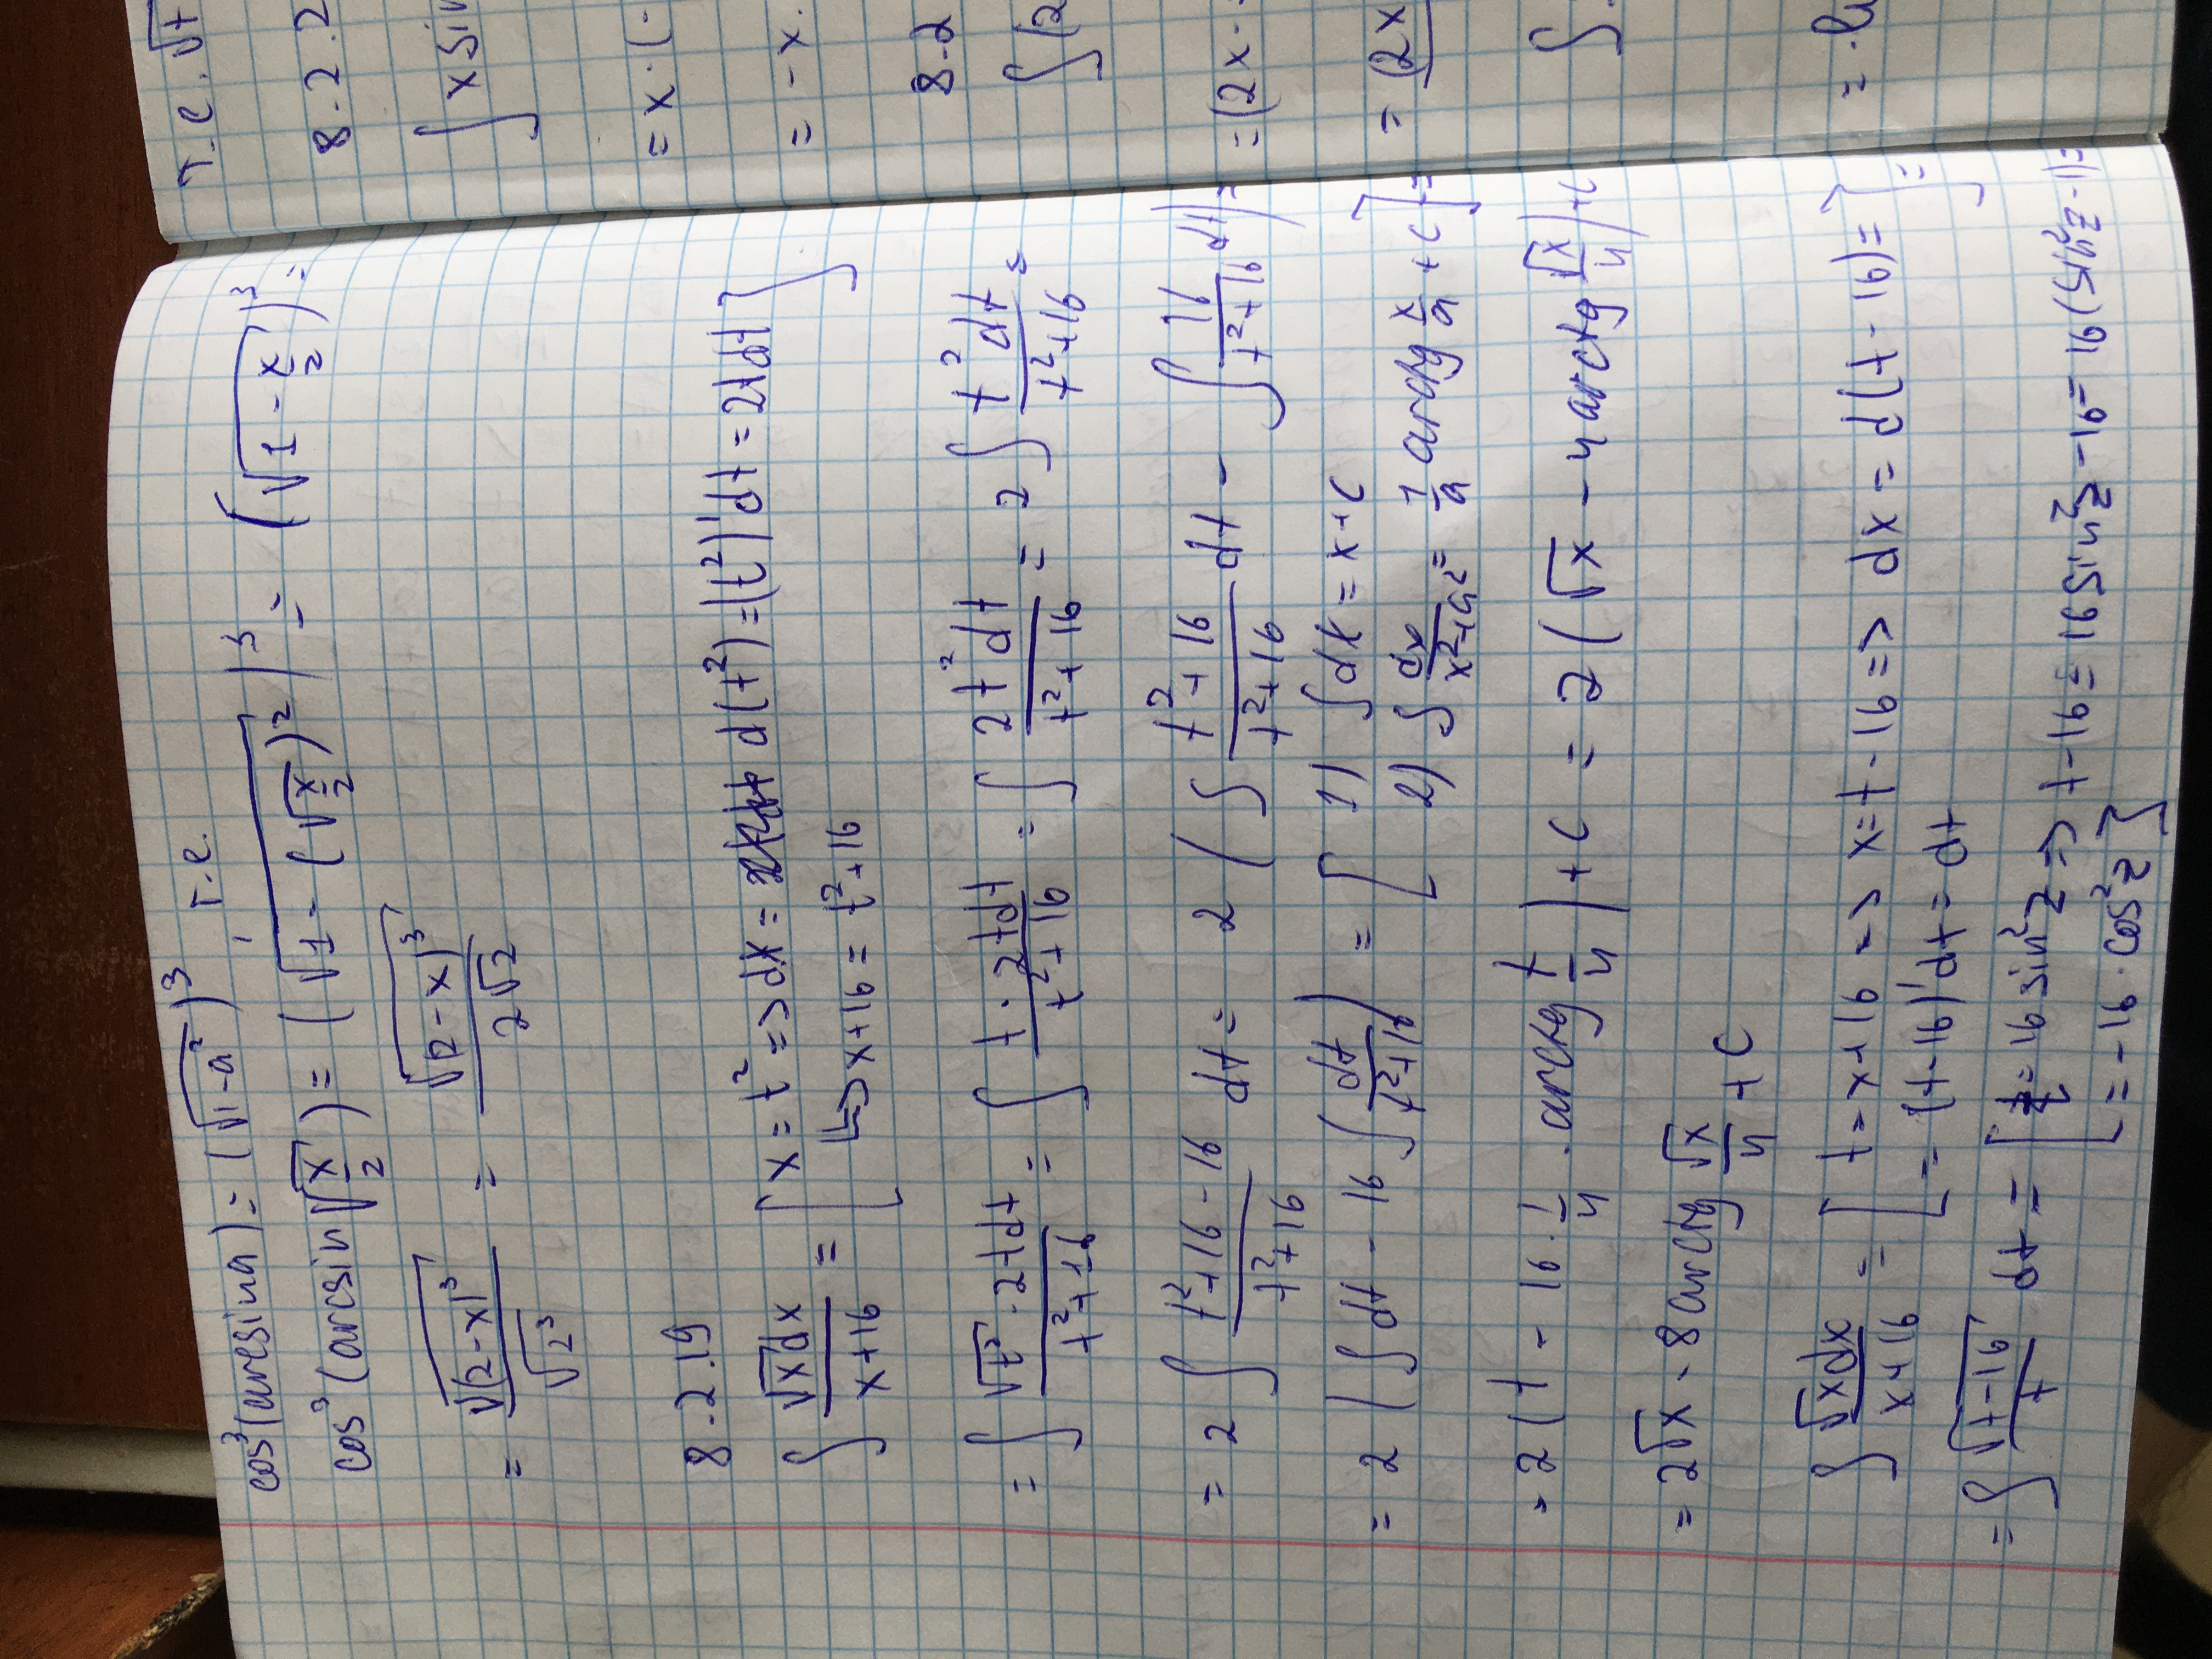 cos³(arcsin a) = (√(1-a²))³, т.е.
cos³(arcsin √(x/2)) = (√(1-(√(x/2))²))³ = (√(1-x/2))³ =
= √((2-x)³)/√(2³) = √((2-x)³)/(2√2)
8.2.19
∫ √x dx/(x+16) = [x = t² => dx = d(t²) = (t²)'dt = 2tdt
=> x+16 = t²+16]
= ∫ √(t²)·2tdt/(t²+16) = ∫ t·2tdt/(t²+16) = ∫ 2t²dt/(t²+16) = 2∫ t²dt/(t²+16) =
= 2∫ (t²+16-16)/(t²+16) dt = 2(∫ (t²+16)/(t²+16) dt - ∫ 16/(t²+16) dt) =
= 2(∫dt - 16∫ dt/(t²+16)) = [1) ∫dx = x+c
2) ∫ dx/(x²+a²) = 1/a arctg x/a + c] =
= 2(t - 16·1/4·arctg t/4) + c = 2(√x - 4arctg √x/4) + c
= 2√x - 8arctg √x/4 + c
∫ √x dx/(x+16) = [t = x+16 => x = t-16 => dx = d(t-16) =
= (t-16)'dt = dt] =
= ∫ √(t-16)/t dt = [t = 16 sin²z => t-16 = 16sin²z - 16 = 16(sin²z-1) =
= -16·cos²z]
т.е. √t
8.2.2
∫ x sin
= x·(-
= -x.
8.2
∫(2
= (2x -
= (2x
∫